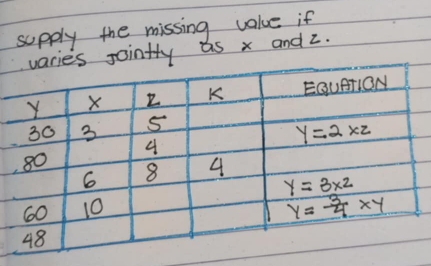 supply the missing value if
varies jointly as x and z.
Y X Z K EQUATION
30 3 5 Y=2xz
80 4
6 8 4
60 10 Y=3xz
48 Y=3/4 xy